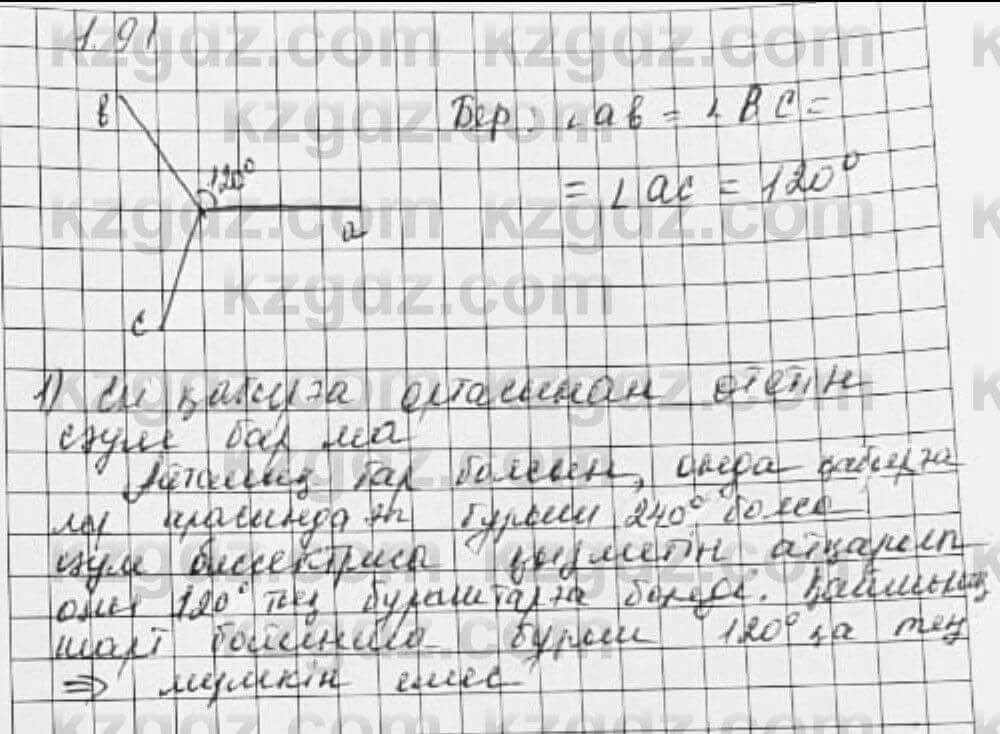 1.91
в
120°
a
c
Бер: ∠ав = ∠ВС =
= ∠ас = 120°
1) Екі қабырға ортасынан өтетін
сәуле бар ма
Айталық бар болсын, онда қабырға
лар арасындағы бұрыш 240° болса
сәуле биссектриса қызметін атқарып
оны 120° тең бұрыштарға бөледі.
шарт бойынша бұрыш 120° қа тең
⇒ мүмкін емес
kzgdz.com